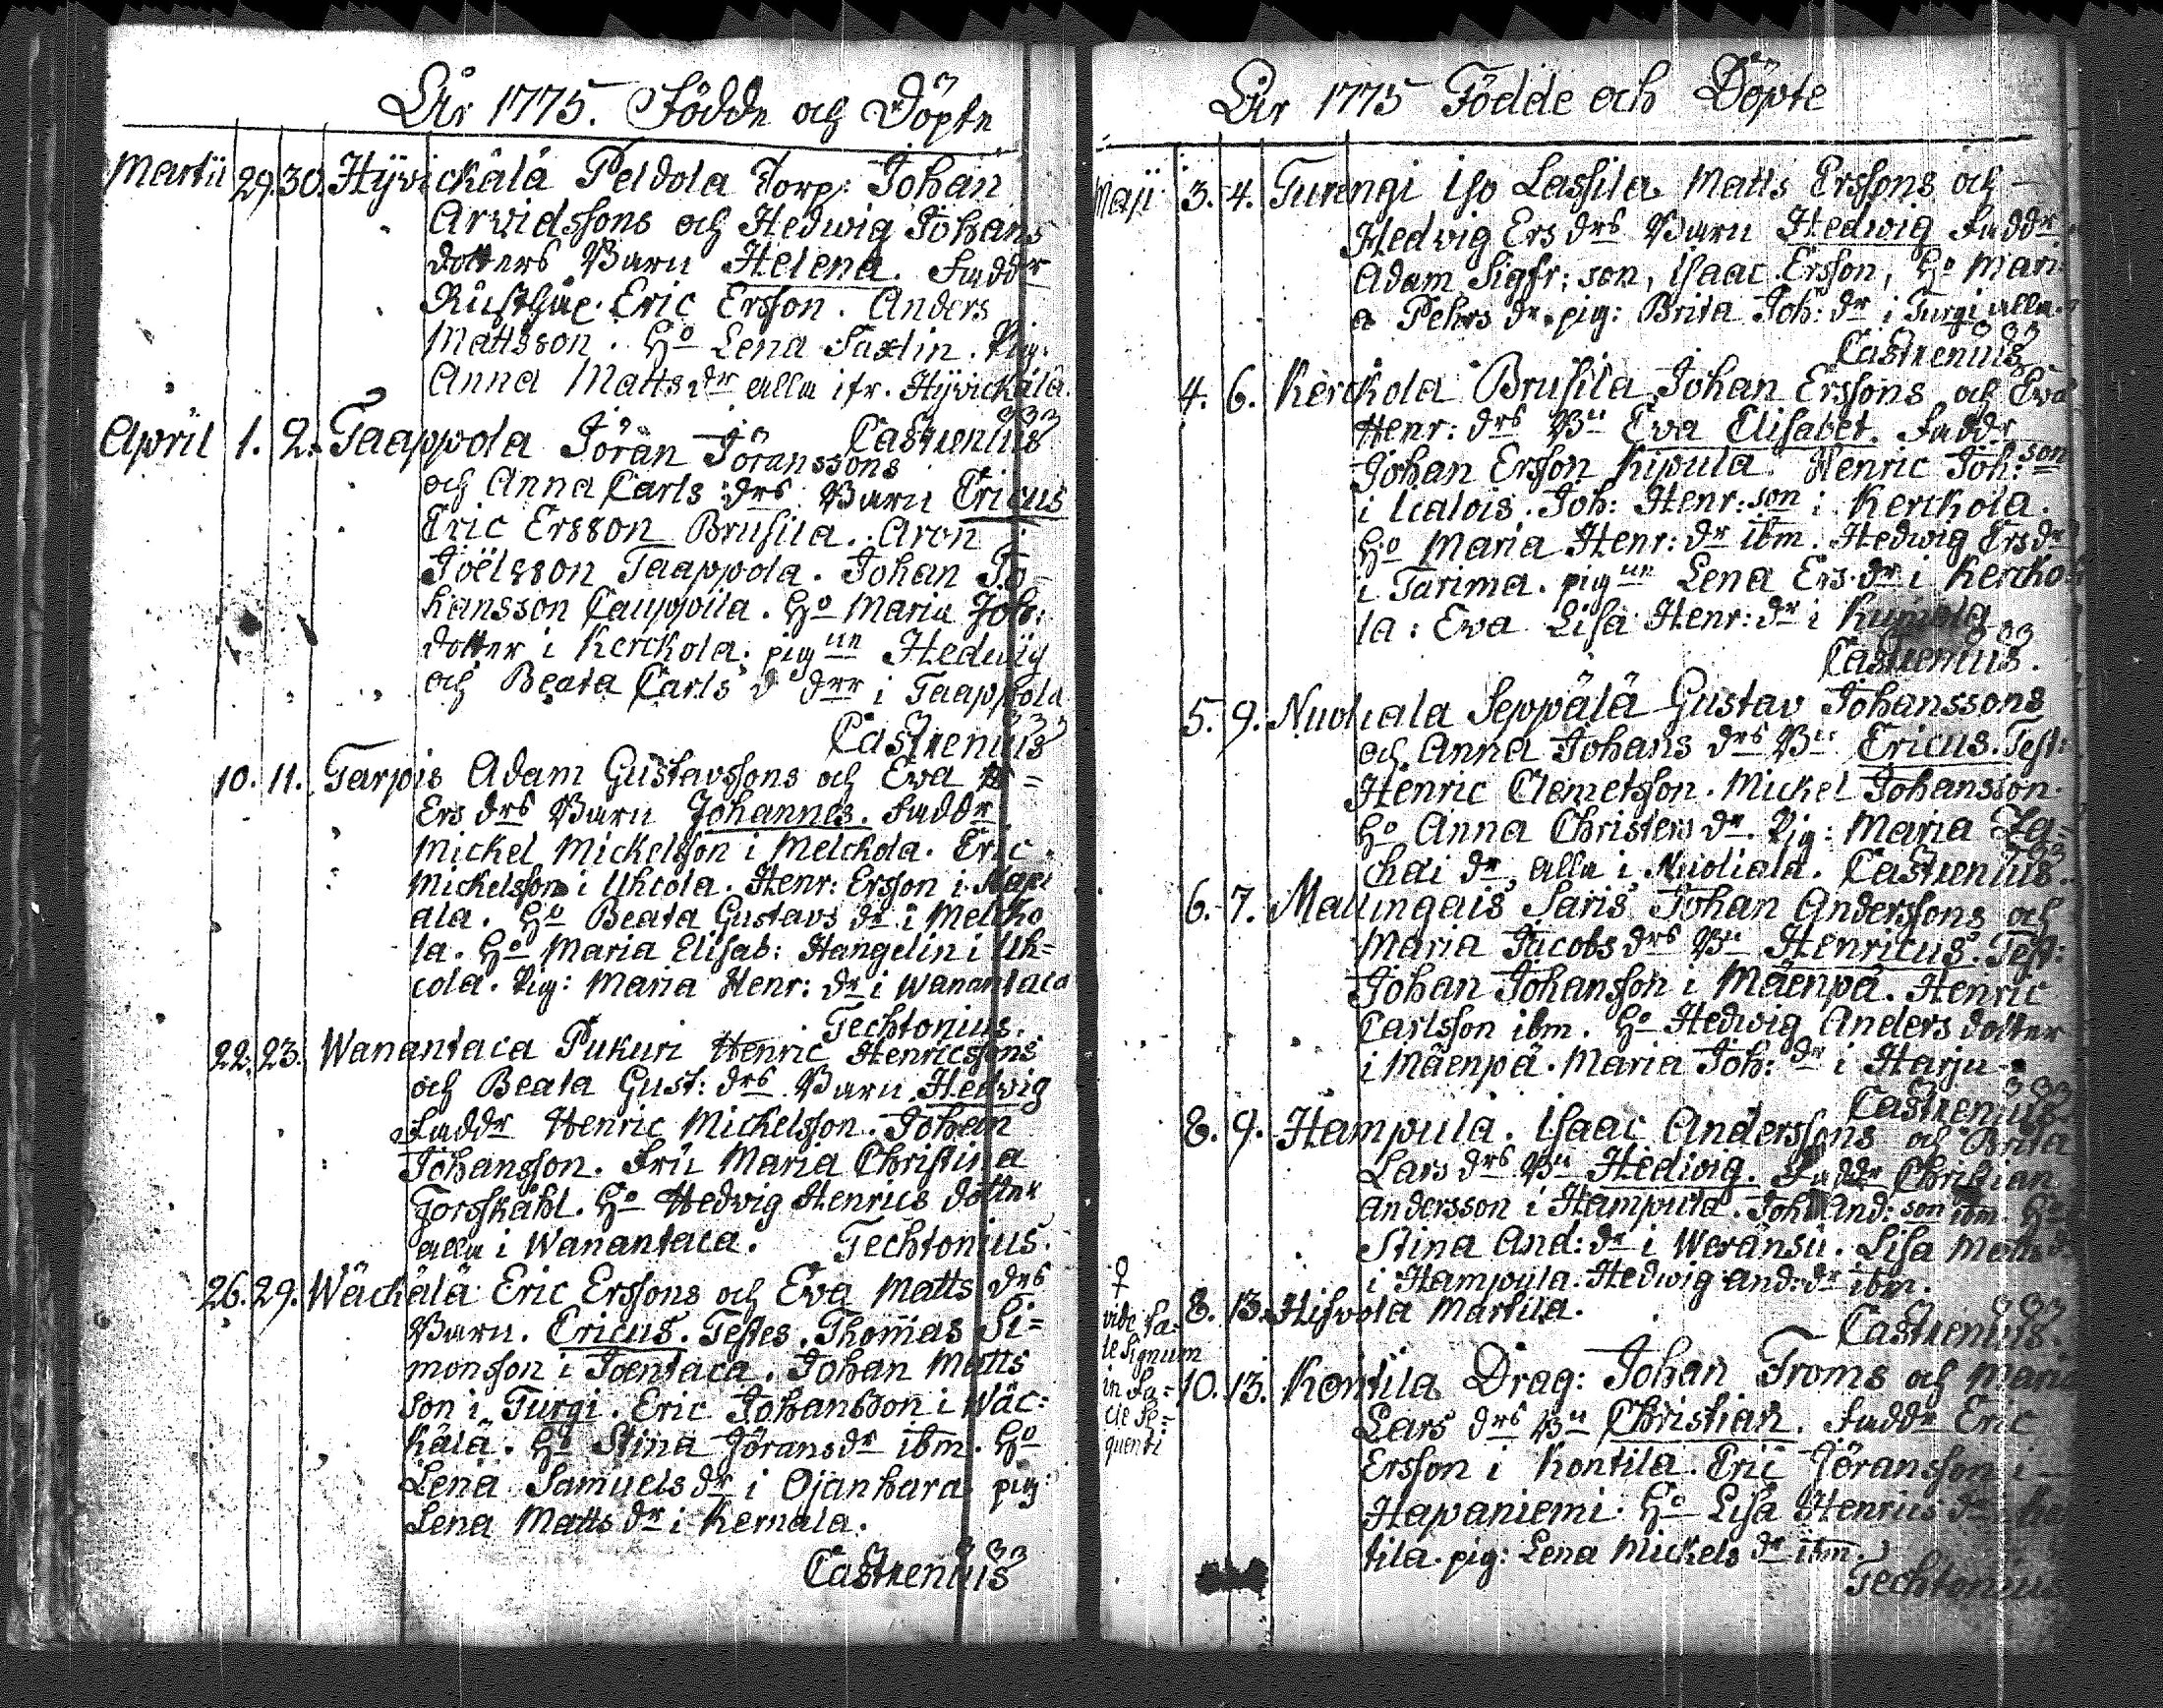 År 1775. Födde och Döpte
Martii 29. 30. Hyvickälä Peldola Torp: Johan
Arvidssons och Hedwig Johans
dotters Barn Helena. Faddr
Rusth: Eric Ersson. Anders
Mattsson. Ho Lena Faxlin. Pig:
Anna Matts dr alla ifr. Hyvickälä.
Castrenius
April 1. 2. Taappola Jöran Jöranssons
och Anna Carls: drs Barn Ericus
Eric Ersson Brusila. Aron
Joëlsson Taappola. Johan Jo=
hansson Cauppila. Ho Maria Joh:
dotter i Kerckola. pig un Hedwig
och Beata Carls d drr i Taappola
Castrenius
10. 11. Tarpis Adam Gustavssons och Eva =
Ers drs Barn Johannes. Faddr
Mickel Mickelsson i Melckola. Eric
Mickelsson i Uhcola. Henr: Ersson i
ala. Ho Beata Gustavs dr i Melcko
la. Ho Maria Elisab: Hangelin i Uh=
cola. Pig: Maria Henr: dr i Wanantaca
Techtonius.
22. 23. Wanantaca Pukuri Henric Henricssons
och Beata Gust: drs Barn Hedvig
Faddr Henric Mickelsson. Johan
Johansson. Fru Maria Christina
Forsskåhl. Ho Hedvig Henrics dotter
alla i Wanantaca. Techtonius.
26. 29. Wäckälä Eric Erssons och Eva Matts drs
Barn. Ericus. Testes. Thomas Si=
monsson i Toentaca. Johan Matts
son i Turgi. Eric Johansson i Wäc=
kälä. Ho Stina Jörans dr ibm. Ho
Lena Samuels dr i Ojanhara pig:
Lena Matts dr i Kernala.
Castrenius
År 1775 Födde och Döpte
Maji 3. 4. Turengi Iso Lassila Matts Erssons och
Hedvig Ers drs Barn Hedwig Faddr
Adam Sigfr: son, Isaac Ersson, Ho Mari
a Pehrs dr. pig: Brita Joh: dr i Turgi alla.
Castrenius
4. 6. Kerckola Brusila Johan Erssons och Eva
Henr: drs Bn Eva Elisabet. Faddr
Johan Ersson Kipula. Henric Joh: son
i Lialois. Joh: Henr: son i Kerckola.
Ho Maria Henr: dr ibm. Hedwig Ers dr
i Tarima. pig un Lena Ers dr i Kercko
la: Ewa Lisa Henr: dr i
Castrenius.
5. 9. Nuoliala Seppälä Gustav Johanssons
och Anna Johans drs Bn Ericus. Test:
Henric Clemetsson. Mickel Johansson.
Ho Anna Christers dr. Pig: Maria Za=
chai dr alla i Nuoliala. Castrenius.
6. 7. Mallingais Saris Johan Anderssons och
Maria Jacobs drs Bn Henricus. Test:
Johan Johansson i Mäenpä. Henric
Carlsson ibm. Ho Hedwig Anders dotter
i Mäenpä. Maria Joh: dr i Harju
Castrenius
8. 9. Hampula. Isaac Anderssons och Brita
Lars drs Bn Hedwig. Faddr Christian
Andersson i Hampula. Joh And: son ibm. Ho
Stina And: dr i Weransu. Lisa Matts dr
i Hampula. Hedwig And: dr ibm.
♀ vide la=
te signum
in fa=
cie se=
quenti
8. 13. Hisvola Martila.
Castrenius.
10. 13. Kontila Drag: Johan Froms och Maria
Lars drs Bn Christian. Faddr Eric
Ersson i Kontila. Eric Jöransson i
Hapaniemi. Ho Lisa Henrics dr
tila. pig: Lena Mickels dr ibm.
Techtonius